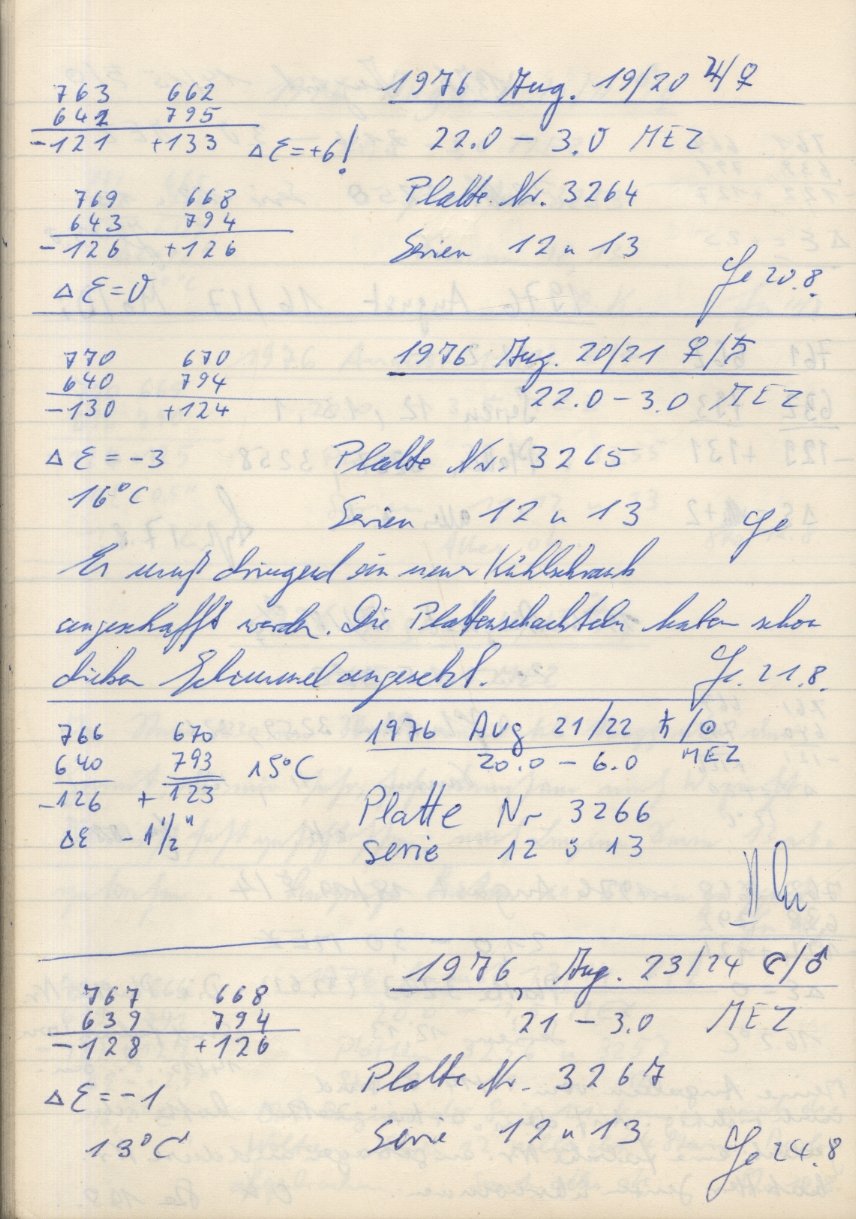 763 662 1976 Aug. 19/20 ♃/♀
642 795 22.0 – 3.0 MEZ
-121 +133 Δε=+6!
769 668 Platte. Nr. 3264
643 794
-126 +126 Serien 12 u 13
Δε=0 Je 20.8.
770 670 1976 Aug. 20/21 ♀/♄
640 794 22.0 – 3.0 MEZ
-130 +124
Δε = -3 Platte Nr. 3265
16°C Serien 12 u 13 Je
Es muß dringend ein neuer Kühlschrank
angeschafft werden. Die Plattenschachteln haben schon
dicken Schimmel angesetzt. Je. 21.8.
766 670 1976 Aug 21/22 ♄/☉
640 793 15°C 20.0 – 6.0 MEZ
-126 + 123 Platte Nr 3266
Δε -1½" Serie 12 u 13
1976, Aug. 23/24 ☾/♂
767 668 21 – 3.0 MEZ
639 794
-128 +126
Δε = -1 Platte Nr. 3267
13°C Serie 12 u 13 Je 24.8